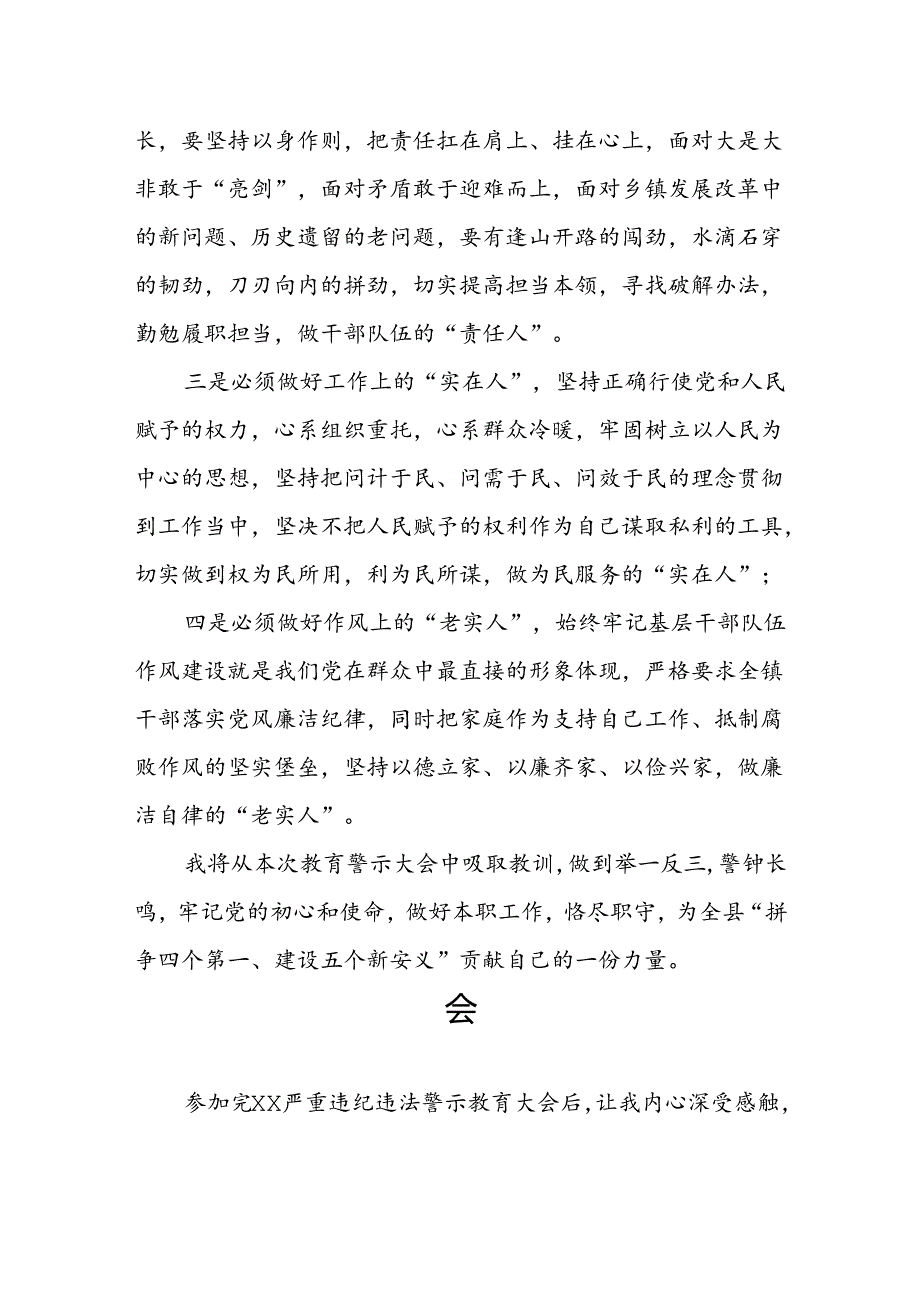 长，要坚持以身作则，把责任扛在肩上、挂在心上，面对大是大
非敢于“亮剑”，面对矛盾敢于迎难而上，面对乡镇发展改革中
的新问题、历史遗留的老问题，要有逢山开路的闯劲，水滴石穿
的韧劲，刀刃向内的拼劲，切实提高担当本领，寻找破解办法，
勤勉履职担当，做干部队伍的“责任人”。
三是必须做好工作上的“实在人”，坚持正确行使党和人民
赋予的权力，心系组织重托，心系群众冷暖，牢固树立以人民为
中心的思想，坚持把问计于民、问需于民、问效于民的理念贯彻
到工作当中，坚决不把人民赋予的权利作为自己谋取私利的工具，
切实做到权为民所用，利为民所谋，做为民服务的“实在人”；
四是必须做好作风上的“老实人”，始终牢记基层干部队伍
作风建设就是我们党在群众中最直接的形象体现，严格要求全镇
干部落实党风廉洁纪律，同时把家庭作为支持自己工作、抵制腐
败作风的坚实堡垒，坚持以德立家、以廉齐家、以俭兴家，做廉
洁自律的“老实人”。
我将从本次教育警示大会中吸取教训,做到举一反三,警钟长
鸣，牢记党的初心和使命，做好本职工作，恪尽职守，为全县“拼
争四个第一、建设五个新安义”贡献自己的一份力量。
会
参加完XX严重违纪违法警示教育大会后,让我内心深受感触,